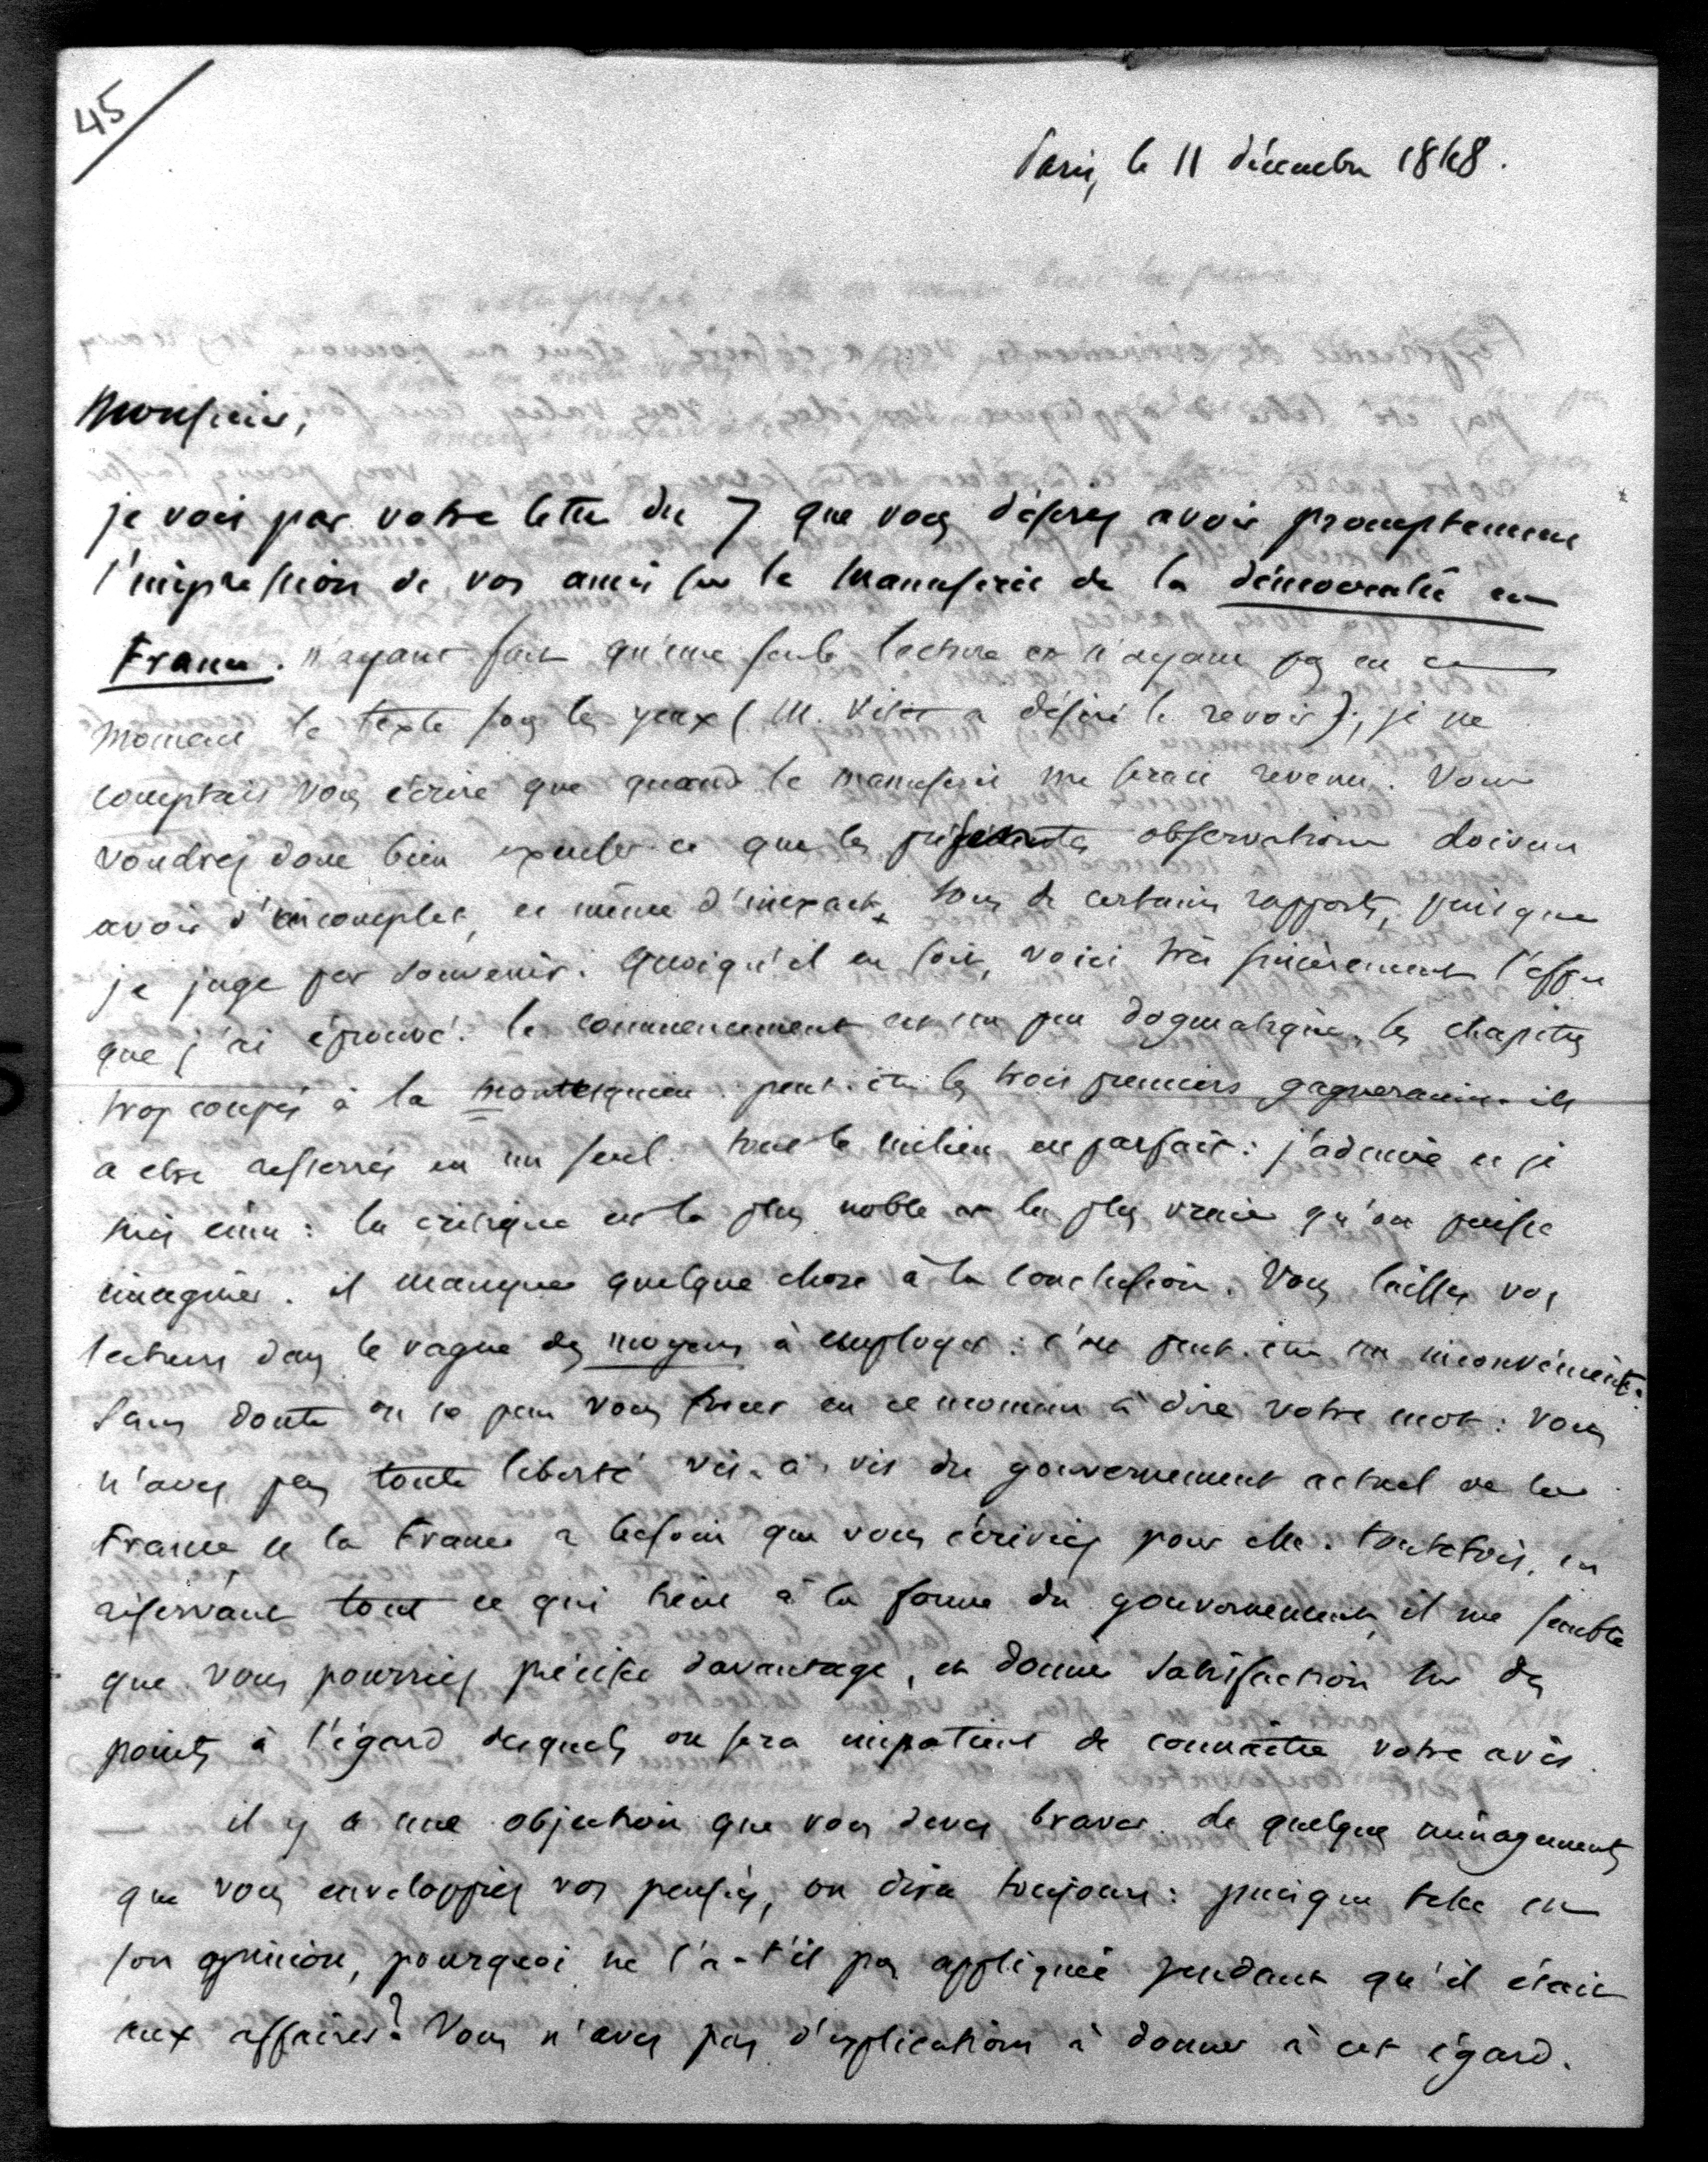 45
Paris, le 11 décembre 1848.
Monsieur,
je vois par votre lettre du 7 que vous désirez avoir promptement
l'impression de vos amis sur le manuscrit de la démocratie en
France. n'ayant fait qu'une seule lecture et n'ayant pas en ce
moment le texte sous les yeux (M. Vitet a désiré le revoir), je ne
comptais vous écrire que quand le manuscrit me serait revenu. Vous
voudrez donc bien excuser ce que les présentes observations doivent
avoir d'incomplet, et même d'inexact, sous de certains rapports, puisque
je juge par souvenir. Quoiqu'il en soit, voici très sincèrement l'effet
que j'ai éprouvé. le commencement est un peu dogmatique, les chapitres
trop coupés à la montesquieu. peut-être les trois premiers gagneraient-ils
a etre resserrés en un seul. tout le milieu est parfait : j'admire et je
suis ému : la critique est la plus noble et la plus vraie qu'on puisse
imaginer. il manque quelque chose à la conclusion. Vous laissez vos
lecteurs dans le vague des moyens à employer : c'est peut-être un inconvénient.
Sans doute on ne peut vous forcer en ce moment à dire votre mot : vous
n'avez pas toute liberté vis-à-vis du gouvernement actuel de la
France et la France a besoin que vous écriviez pour elle. toutefois, en
réservant tout ce qui tient à la forme du gouvernement, il me semble
que vous pourriez préciser davantage, et donner satisfaction sur des
points à l'égard desquels on sera impatient de connaître votre avis.
il y a une objection que vous devez braver. de quelques ménagements
que vous enveloppiez vos pensées, on dira toujours : puisque telle est
son opinion, pourquoi ne l'a-t'il pas appliquée pendant qu'il était
aux affaires ? Vous n'avez pas d'explications à donner à cet égard.